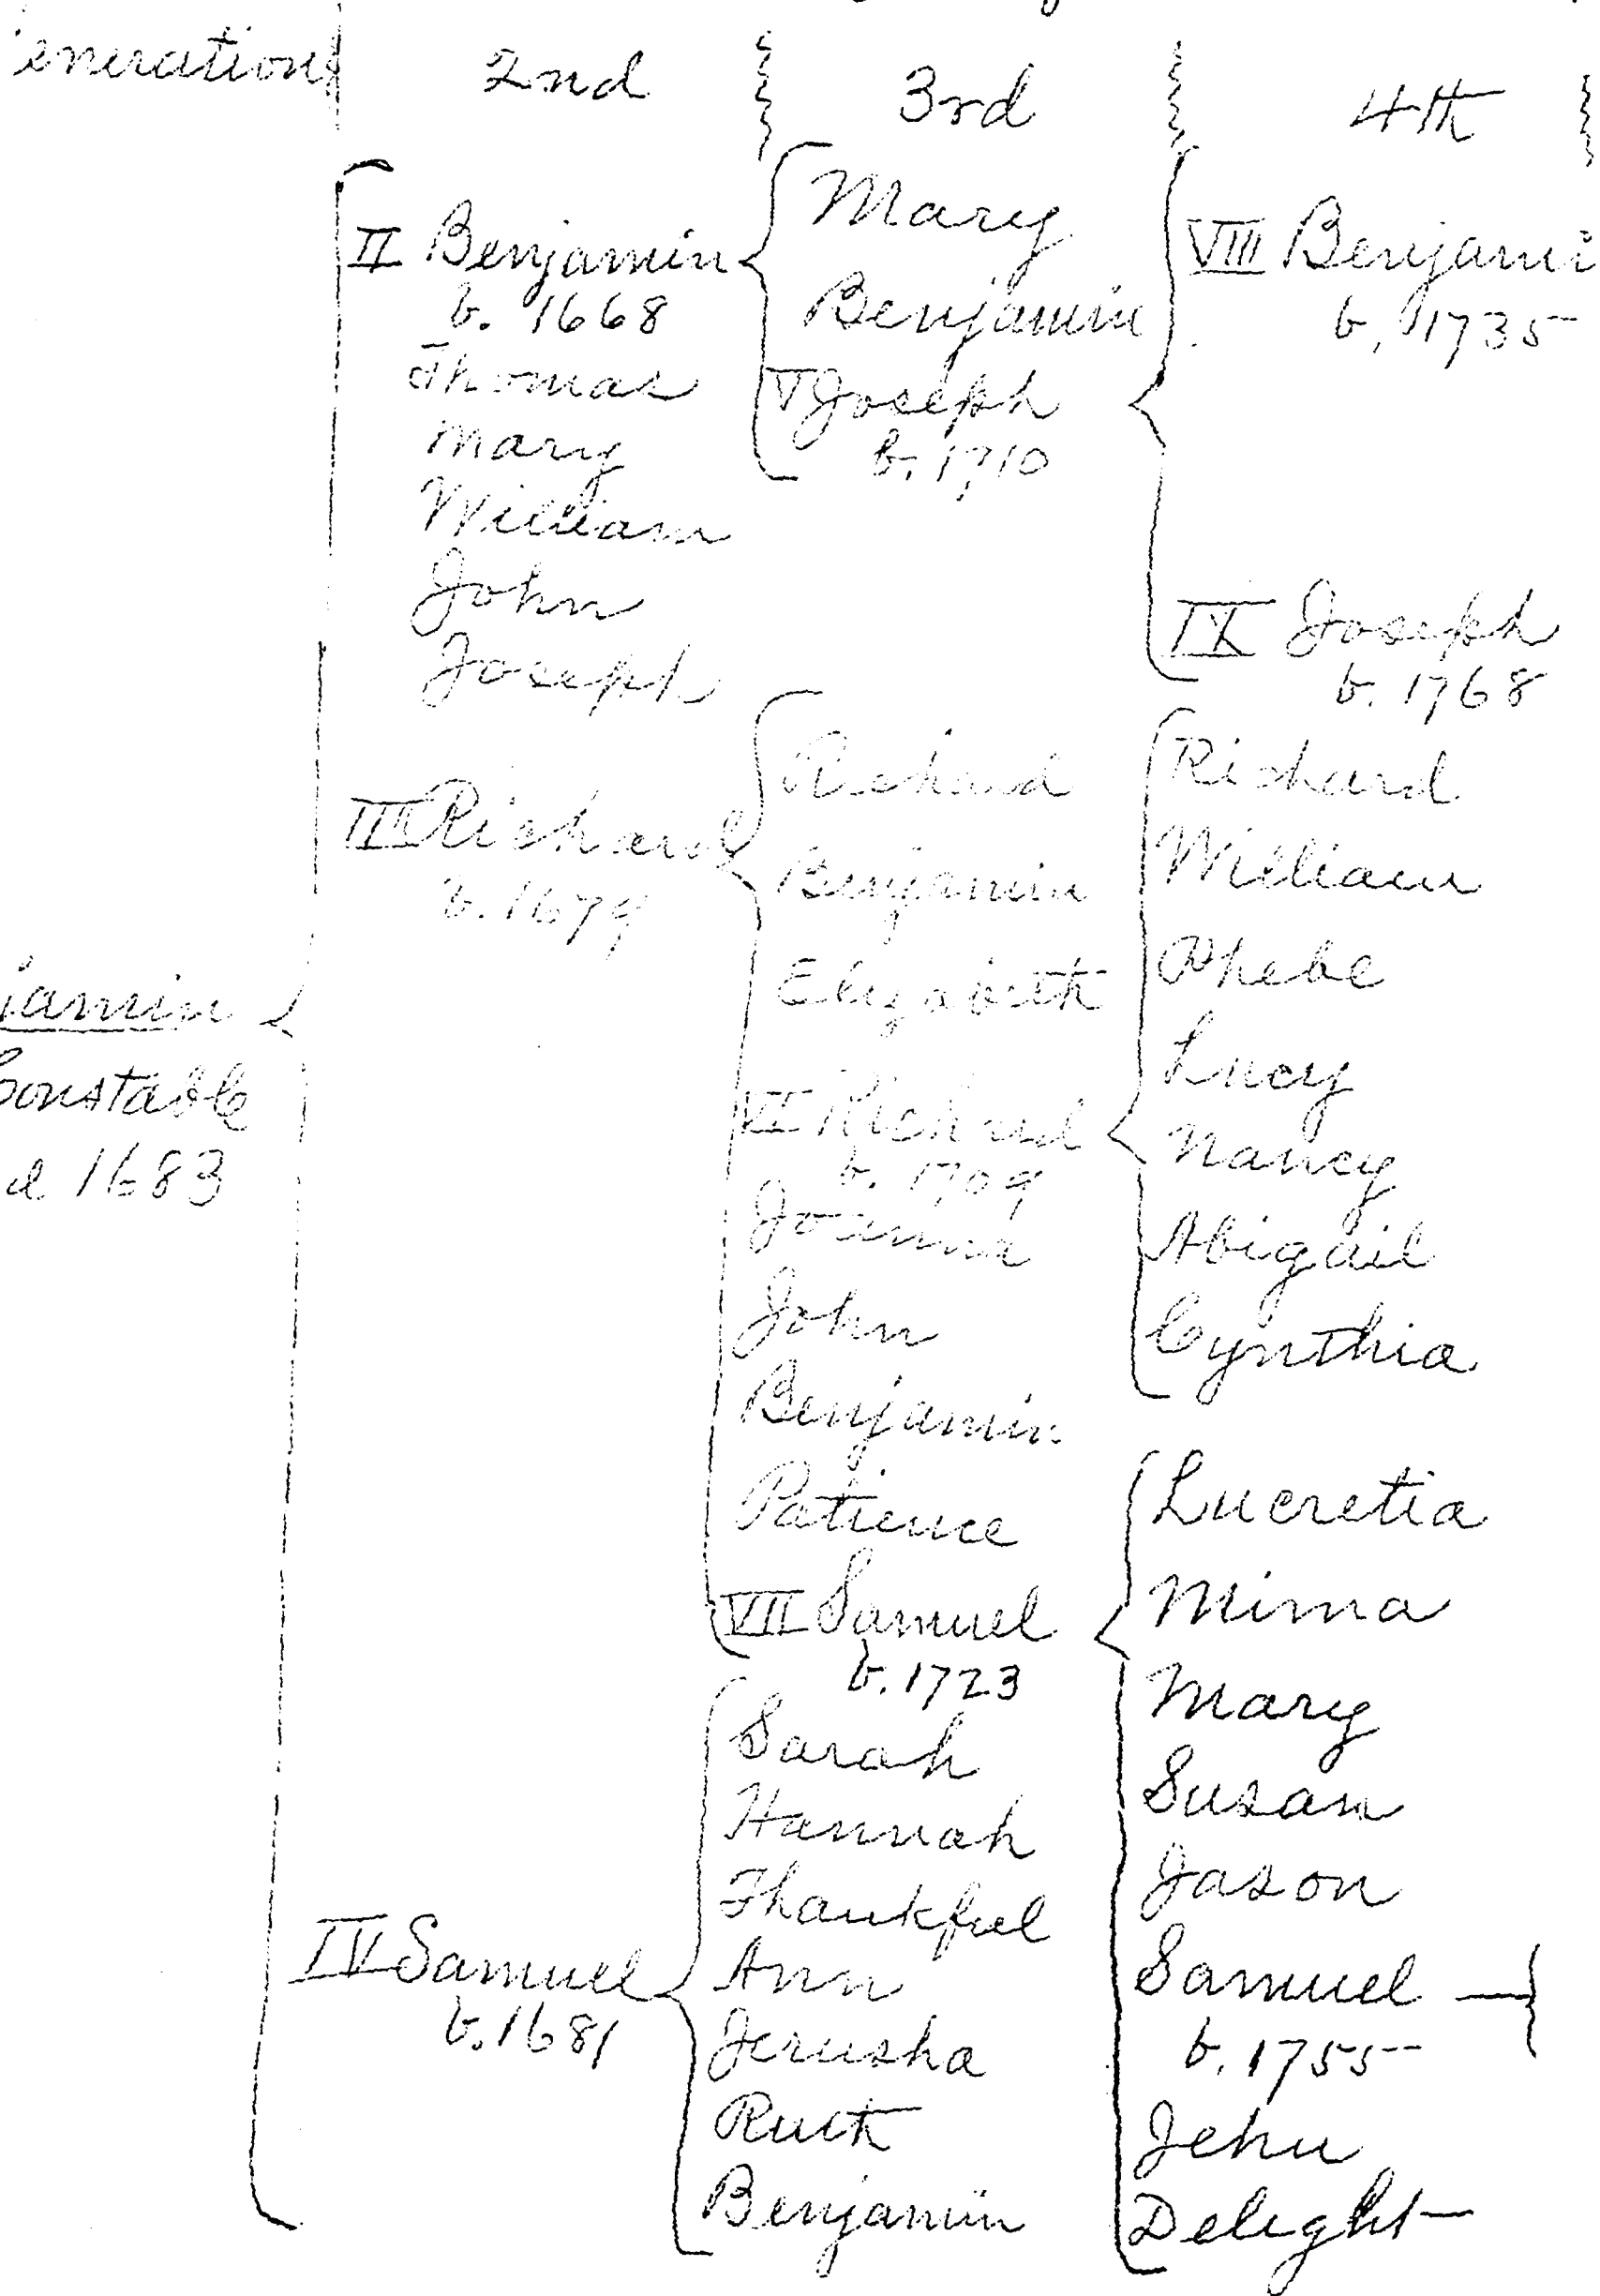 enerations 2nd 3rd 4th
II Benjamin
b. 1668
Thomas
Mary
William
John
Joseph
III Richard
b. 1679
jamin
Constable
d 1683
IV Samuel
b. 1681
Mary
Benjamin
V Joseph
b. 1710
Richard
Benjamin
Elizabeth
VI Richard
b. 1709
Joanna
John
Benjamin
Patience
VII Samuel
b. 1723
Sarah
Hannah
Thankful
Ann
Jerusha
Ruth
Benjamin
VIII Benjami
b. 1735
IX Joseph
b. 1768
Richard
William
Phebe
Lucy
Nancy
Abigail
Cynthia
Lucretia
Mima
Mary
Susan
Jason
Samuel
b. 1755
Jehu
Delight